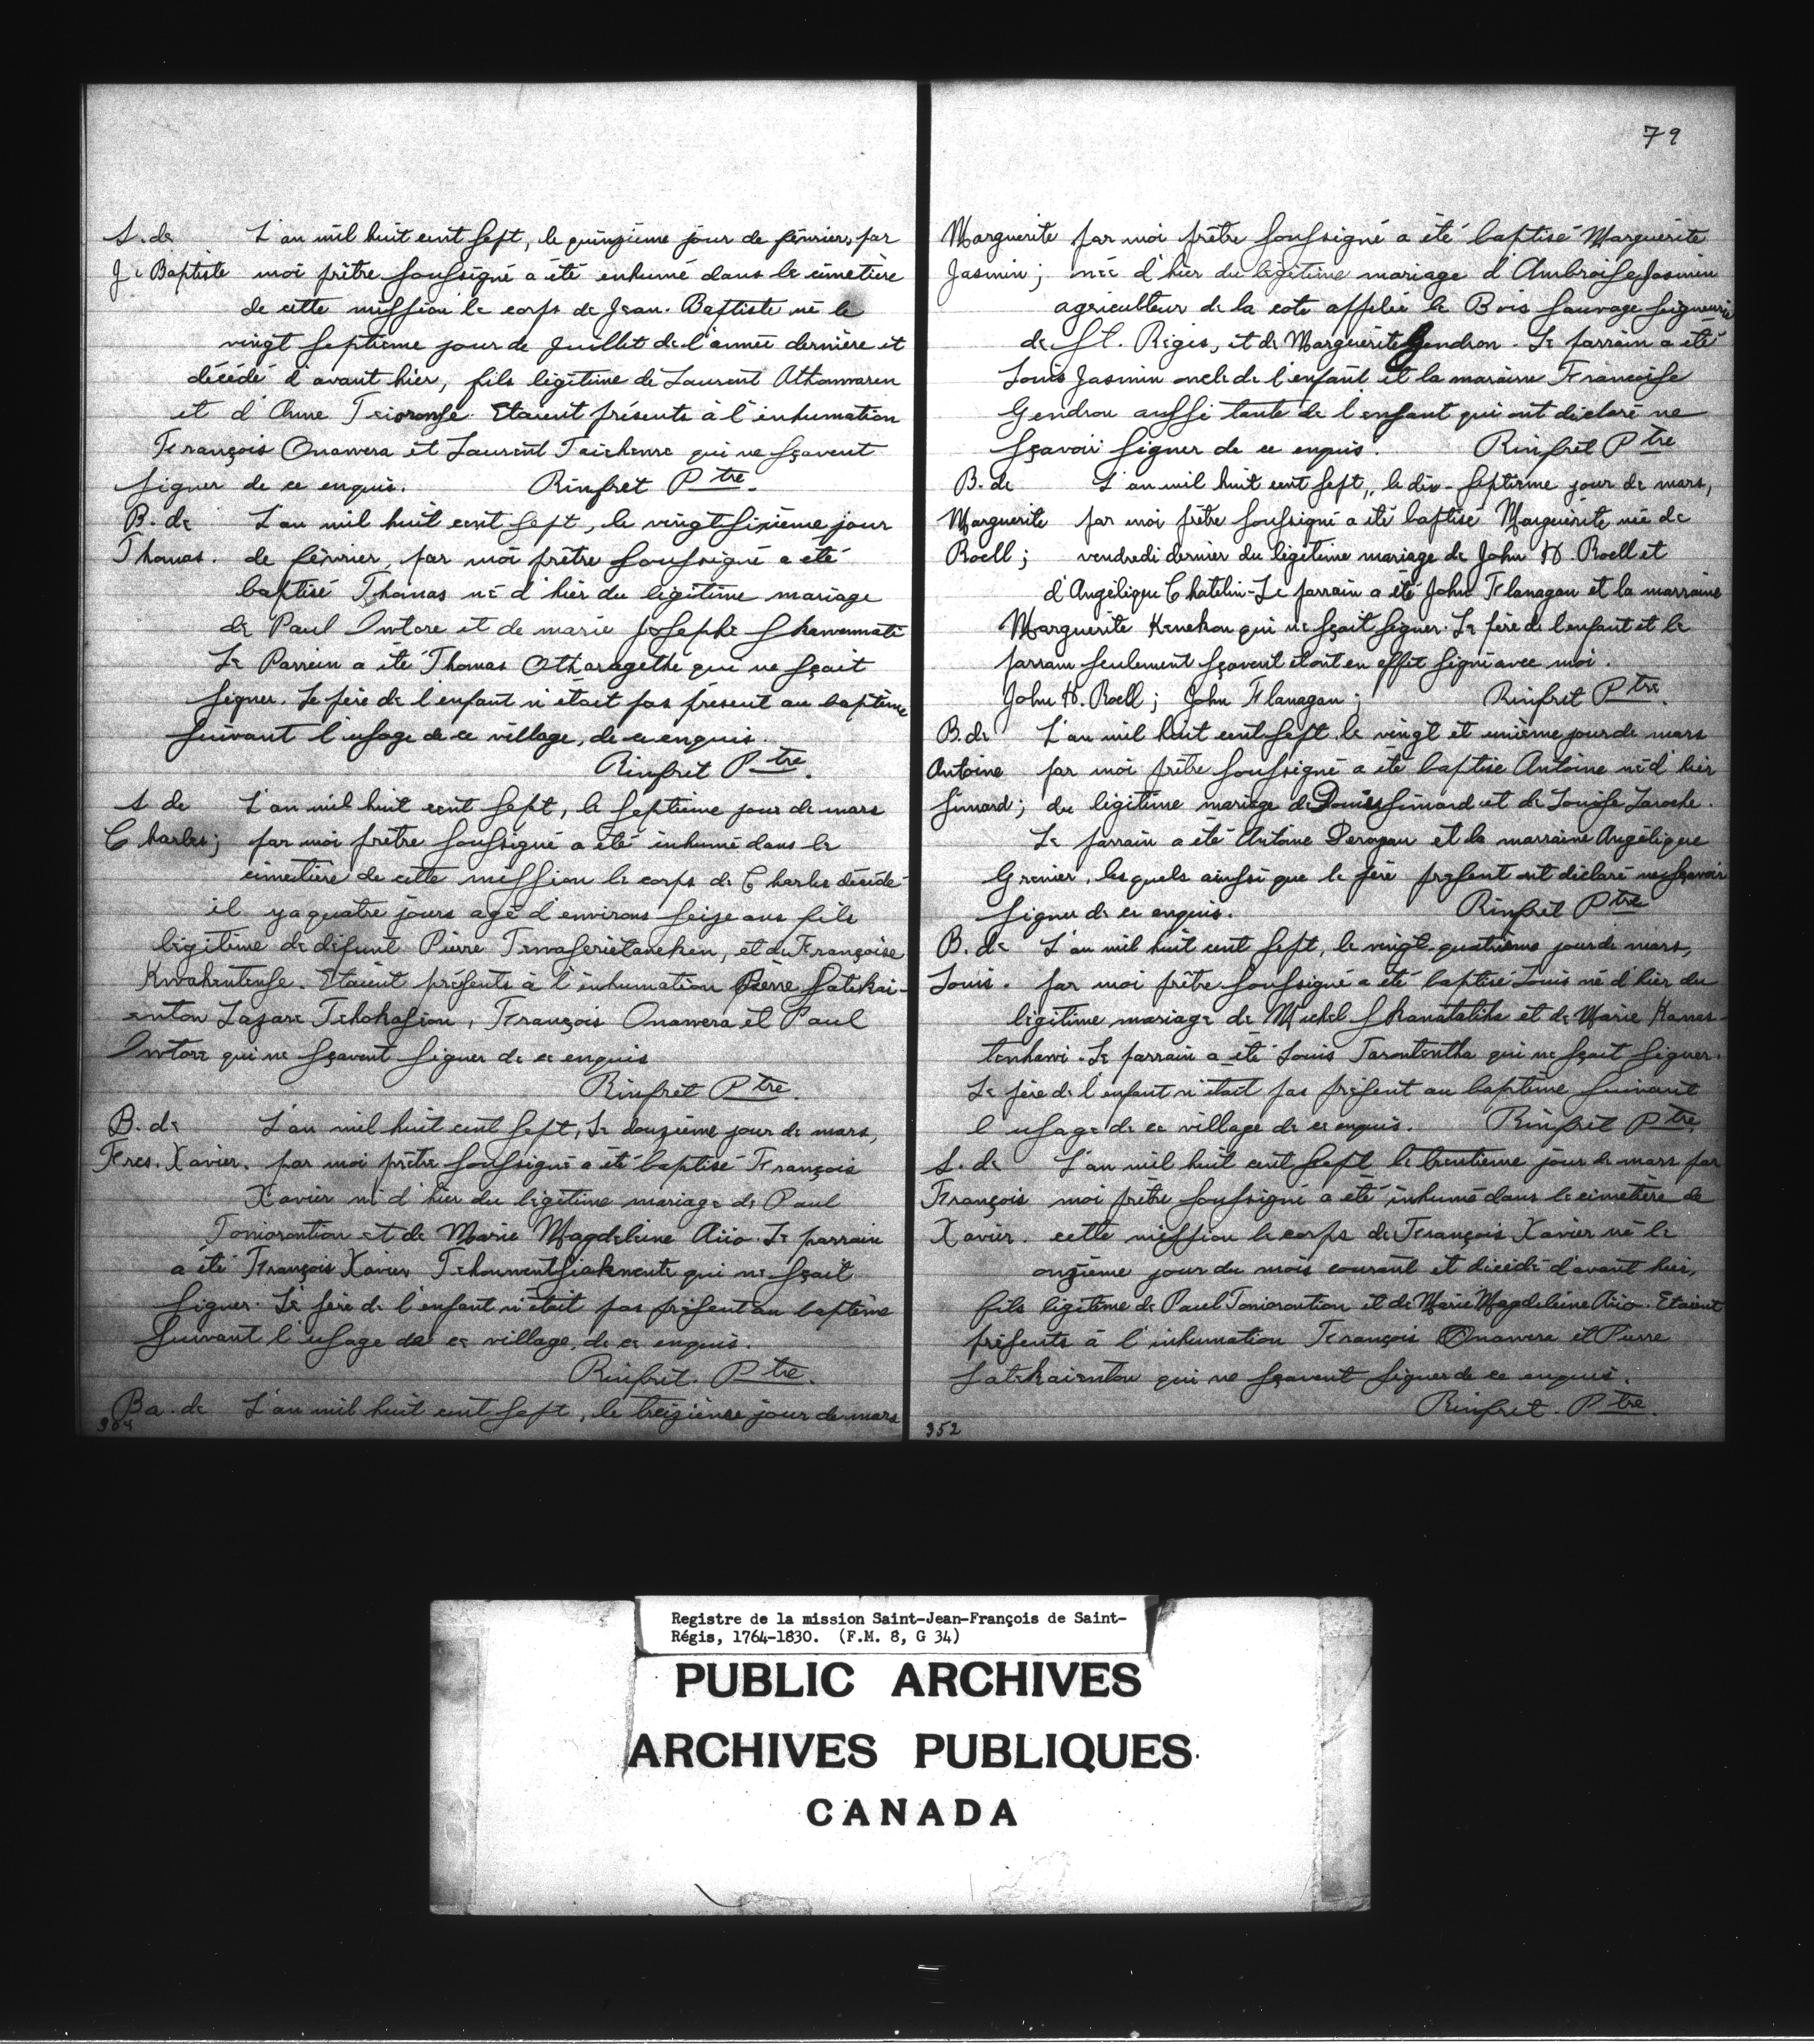 S. de L'an mil huit cent sept, le quinzième jour de février, par
J. Baptiste moi prêtre soussigné a été enhumé dans le cimetière
de cette mission le corps de Jean-Baptiste né le
vingt septième jour de Juillet de l'année dernière et
décédé d'avant hier, fils légitime de Laurent
et d'Anne Etaient présents à l'inhumation
François Onawera et Laurent qui ne sçavent
signer de ce enquis. Rinfret Ptre.
B. de L'an mil huit cent sept, le vingt sixième jour
Thomas. de février, par moi prêtre soussigné a été
baptisé Thomas né d'hier du légitime mariage
de Paul Intore et de marie Josephe
Le Parrein a été Thomas Otharagethe qui ne sçait
signer. Le père de l'enfant n'était pas présent au baptême
suivant l'usage de ce village, de ce enquis.
Rinfret Ptre.
S. de L'an mil huit cent sept, le septième jour de mars
Charles; par moi prêtre soussigné a été inhumé dans le
cimetière de cette mission le corps de Charles décédé
il y a quatre jours agé d'environs seize ans fils
légitime de défunt Pierre et de Françoise
Etaient présents à l'inhumation Pierre Satekai-
enton Lazare Tehokasion, François Onawera et Paul
Intore qui ne sçavent signer de ce enquis
Rinfret Ptre.
B. de L'an mil huit cent sept, Le douzième jour de mars,
Frcs. Xavier. par moi prêtre soussigné a été baptisé François
Xavier né d'hier du légitime mariage de Paul
Toniorontion et de Marie Magdeleine Aiio. Le parrain
a été François Xavier qui ne sçait
signer. Le père de l'enfant n'était pas présent au baptême
suivant l'usage de ce village, de ce enquis.
Rinfret. Ptre.
Ba. de L'an mil huit cent sept, le treizième jour de mars
79
Marguerite par moi prêtre soussigné a été baptisé Marguerite
Jasmin; née d'hier du légitime mariage d'Ambroise Jasmin
agriculteur de la cote appelée le Bois sauvage seigneurie
de St. Regis, et de Marguerite Gendron. Le parrain a été
Louis Jasmin oncle de l'enfant et la maraine Francoise
Gendron aussi tante de l'enfant qui ont déclaré ne
sçavoir signer de ce enquis. Rinfret Ptre
B. de L'an mil huit cent sept, le dix-septième jour de mars,
Marguerite par moi prêtre soussigné a été baptisé Marguerite née de
Roell; vendredi dernier du légitime mariage de John H. Roell et
d'Angélique Chatelin. Le parrain a été John Flanagan et la marraine
Marguerite Kenekou qui ne sçait signer. Le père de l'enfant et le
parrain seulement sçavent et ont en effet signé avec moi.
John H. Roell; John Flanagan; Rinfret Ptre.
B. de L'an mil huit cent sept, le vingt et unième jour de mars
Antoine par moi prêtre soussigné a été baptisé Antoine né d'hier
Simard; du légitime mariage de Louis Simard et de Louise Laroche.
Le parrain a été Antoine et la marraine Angélique
Grenier, lesquels ainsi que le père présent ont déclaré ne sçavoir
signer de ce enquis. Rinfret Ptre
B. de L'an mil huit cent sept, le vingt-quatrième jour de mars,
Louis. par moi prêtre soussigné a été baptisé Louis né d'hier du
légitime mariage de Michel Skanatatiha et de Marie Kanas-
tenhawi. Le parrain a été Louis Tarontentha qui ne sçait signer.
Le père de l'enfant n'était pas présent au baptême suivant
l'usage de ce village de ce enquis. Rinfret Ptre.
S. de L'an mil huit cent sept le trentième jour de mars par
François moi prêtre soussigné a été inhumé dans le cimetière de
Xavier. cette mission le corps de François Xavier né le
onzième jour du mois courant et décédé d'avant hier,
fils légitime de Paul Toniorontion et de Marie Magdeleine Aiio. Etaient
présents à l'inhumation François Onawera et Pierre
Satekaienton qui ne sçavent signer de ce enquis.
Rinfret. Ptre.
352
Registre de la mission Saint-Jean-François de Saint-
Régis, 1764-1830. (F.M. 8, G 34)
PUBLIC ARCHIVES
ARCHIVES PUBLIQUES
CANADA